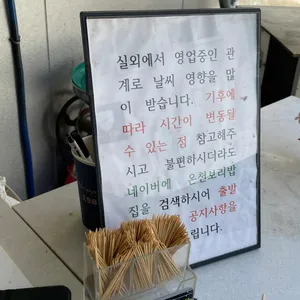 실외에서 영업중인 관
계로 날씨 영향을 많
이 받습니다. 기후에
따라 시간이 변동될
수 있는 점 참고해주
시고 불편하시더라도
네이버에 온천보리밥
집을 검색하시어 출발
공지사항을
립니다.